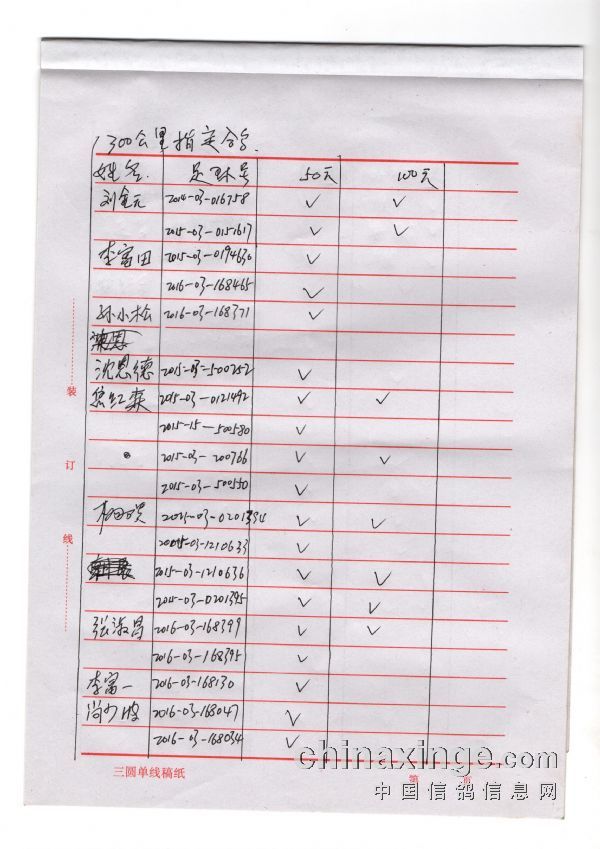 1300公里指定鸽
姓名. 足环号 50元 100元
刘金元 2014-03-016758 ✓ ✓
2015-03-0151617 ✓ ✓
李富田 2015-03-0194630 ✓
2016-03-168465 ✓
孙小松 2016-03-168371 ✓
沈恩德 2015-03-500252 ✓
红 2015-03-0121492 ✓ ✓
2015-15-500580 ✓
2015-03-200766 ✓ ✓
2015-03-500550 ✓
0201334 ✓ ✓
03-1210633 ✓
2015-03-1210636 ✓ ✓
03-0201395 ✓ ✓
张淑昌 2016-03-168399 ✓ ✓
2016-03-168395 ✓
李富一 2016-03-168130 ✓
尚少波 2016-03-168047 ✓
2016-03-168034 ✓
装
订
线
三圆单线稿纸 第 页
chinaxinge.com
中国信鸽信息网